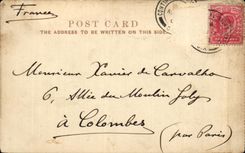 France
POST CARD
THE ADDRESS TO BE WRITTEN ON THIS SIDE
Monsieur Xavier de Carvalho
6, Allée du Moulin Joly
à Colombes
(par Paris)